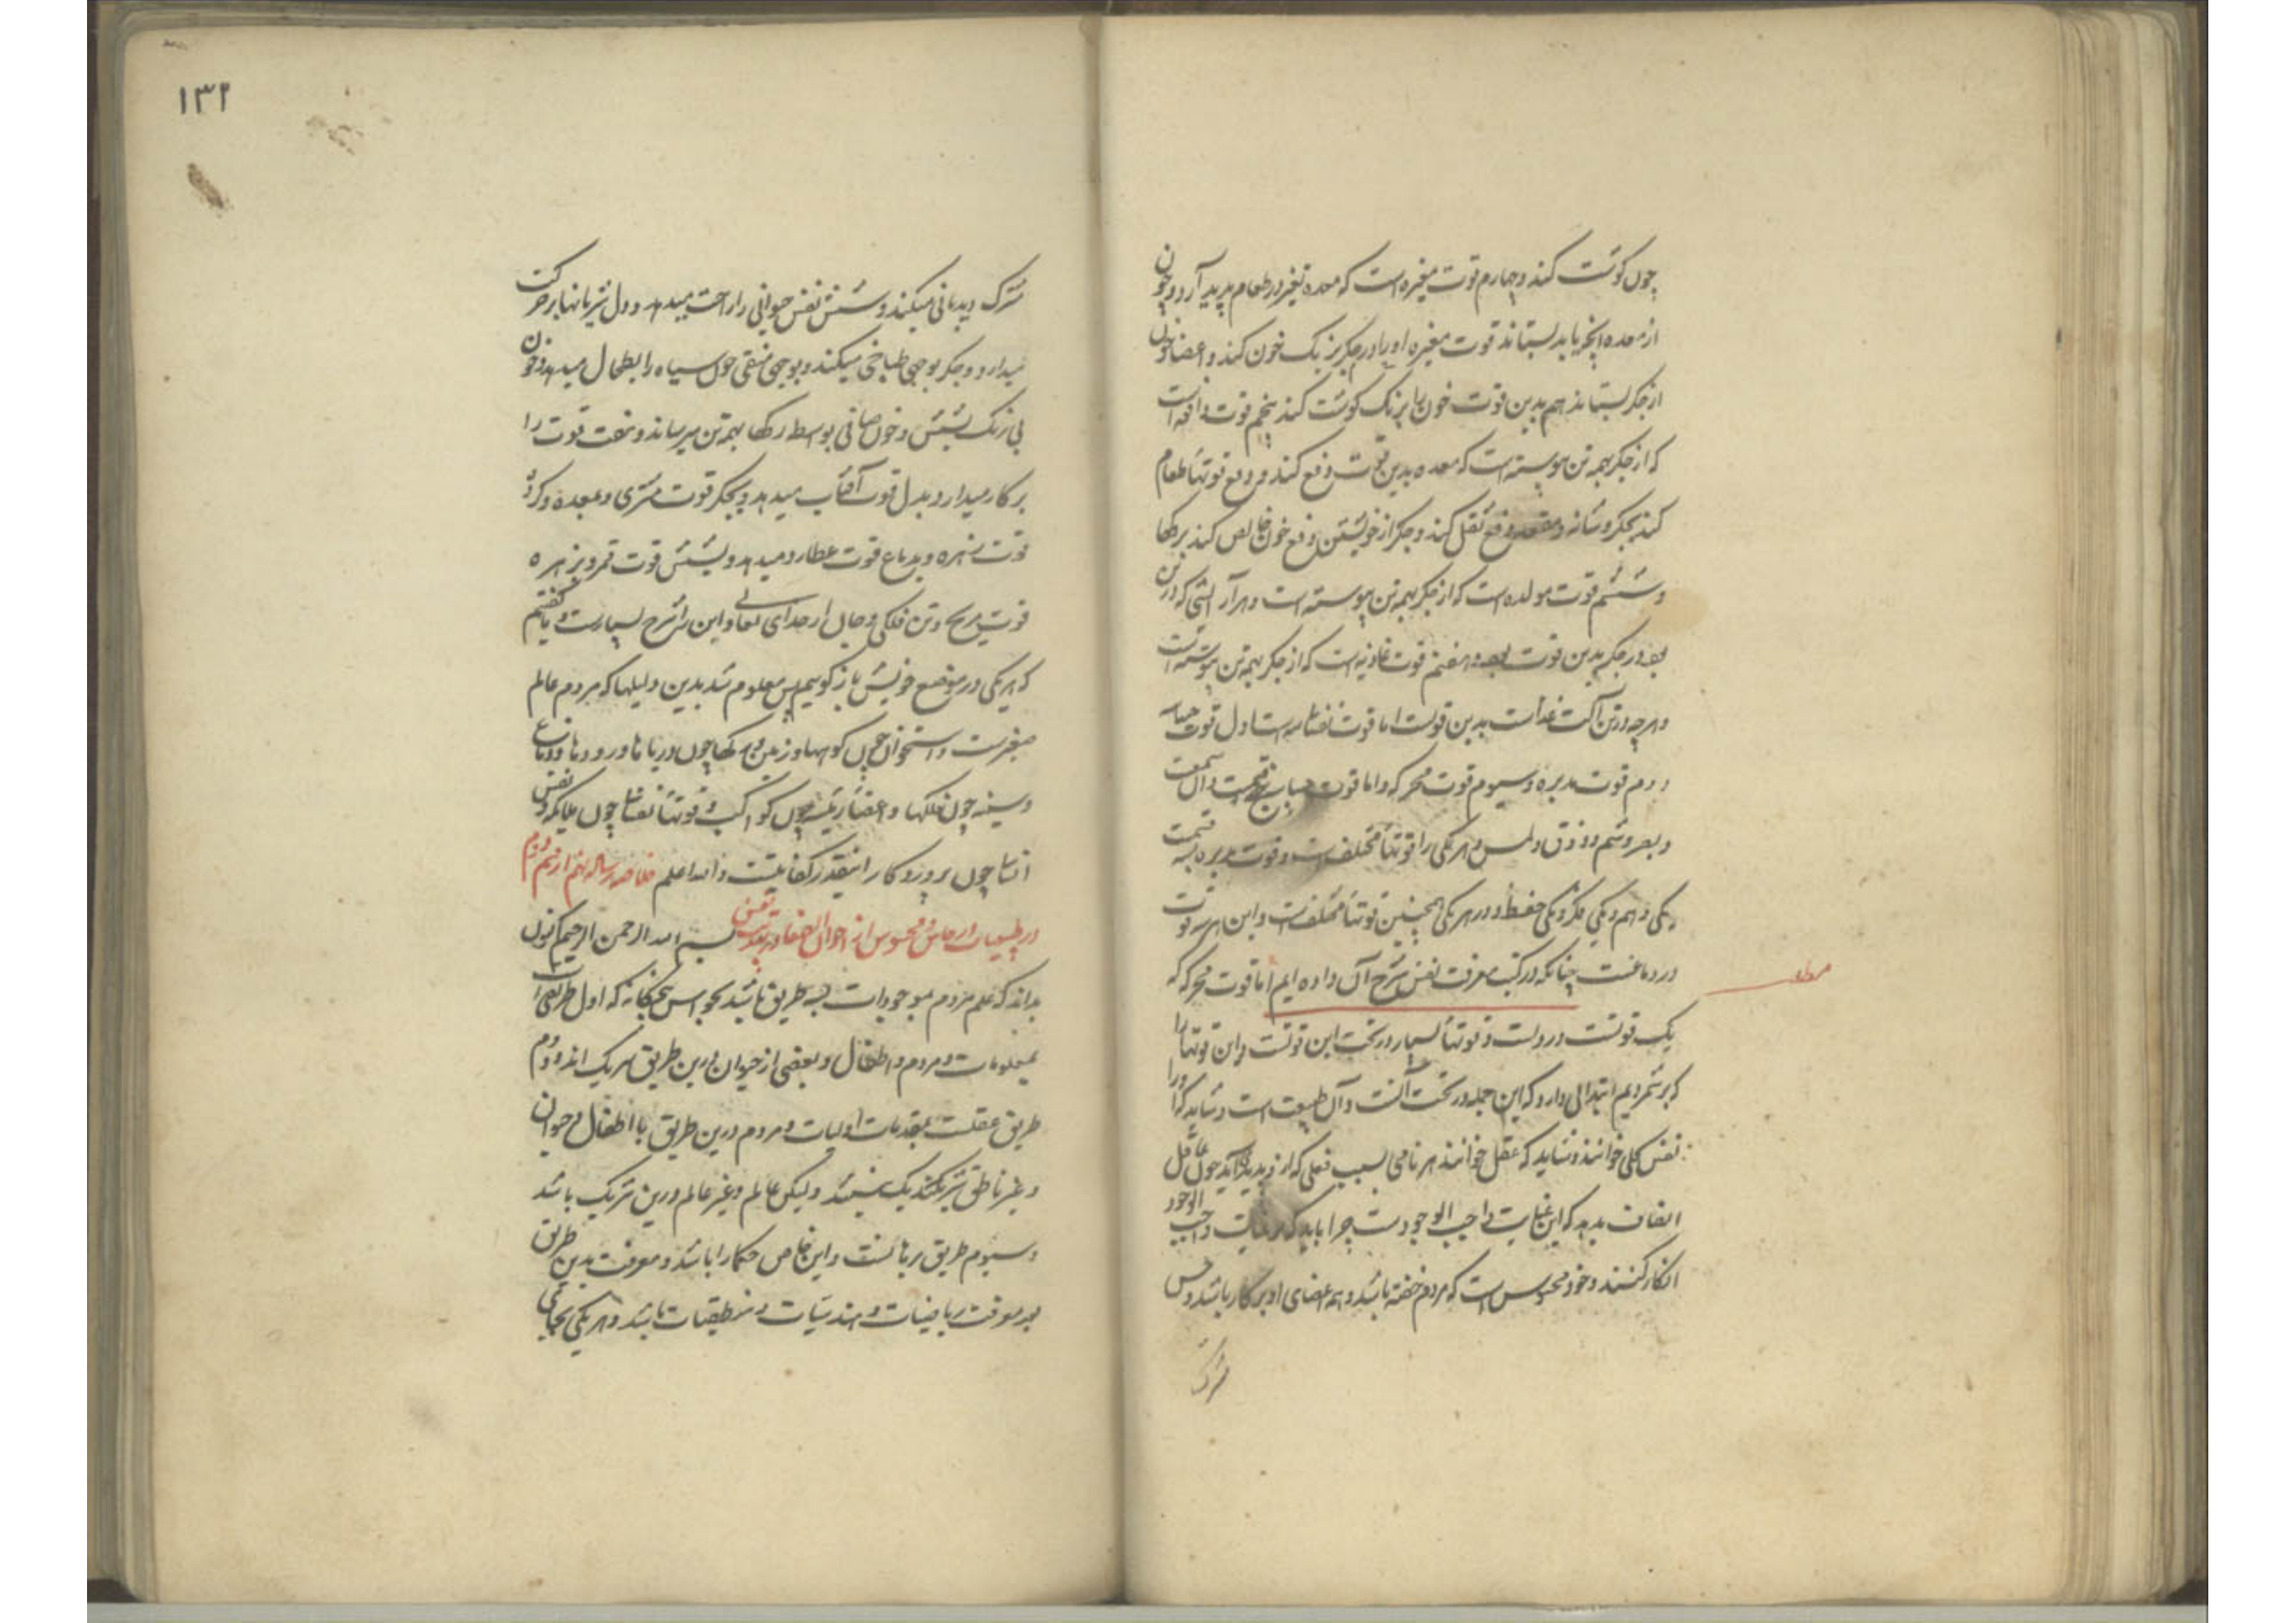 چون گوشت کند و چهارم قوت مغیره است که معده تغیر در طعام پدید آرد و چون
از معده بجگر باید بستاند قوت مغیره او را در جگر برنگ خون کند و اعضا چون
از جگر بستاند هم بدین قوت خون را برنگ گوشت کند پنجم قوت دافعه است
که از جگر بهمه تن پیوسته است که معده بدین قوت دفع کند و دفع قوتها طعام
کند بجگر و مثانه و مقعد دفع ثقل کند و جگر از خویشتن دفع خون خالص کند برگها
و ششم قوت مولده است که از جگر بهمه تن پیوسته است و هر آرایشی که در تن
بود در جگر بدین قوت بود و هفتم قوت غاذیه است که از جگر بهمه تن پیوسته است
و هرچه در تن آلت غذاست بدین قوتست اما قوت نفسانی سه است اول قوت حساسه
دوم قوت مدبره و سیوم قوت محرکه و اما قوت حساسه پنج قسمت و آن سمعست
و بصر و شم و ذوق و لمس و هر یکی را قوتها مختلف است و قوت مدبره بسه قسمت
یکی وهم و یکی فکر و یکی حفظ و در هر یکی همچنین قوتها مختلفست و این هر سه قوت
در دماغست چنانکه در کتب معرفت نفس شرح آن داده ایم اما قوت محرکه که
یک قوتست در دلست و قوتها بسیار در تحت این قوتست و این قوتها را
که برشمردیم ابتدائی دارد که این جمله در تحت آنست و آن طبیعت است و شاید که او را
نفس کلی خوانند و شاید که عقل خوانند هر نامی بسبب فعلی که ازو پدید آید چون عاقل
انصاف بدهد که این عنایت واجب الوجودست چرا باید که عنایت واجب الوجود
انکار کنند و خود محسوس است که مردم خفته باشد و همه اعضای او بر کار باشد و حس
مشترک
۱۳۲
مشترک دیدبانی میکند و شش نفس حیوانی را راحت میدهد و دل شریانها بر حرکت
میدارد و جگر بوجهی طباخی میکند و بوجهی سقی خون سیاه را بطحال میدهد و خون
بی رنگ بشش و خون صافی بواسطه رگها بهمه تن میرساند و هفت قوت را
بر کار میدارد و بدل قوت آفتاب میدهد و بجگر قوت مشتری و بمعده و گرده
قوت زهره و بدماغ قوت عطارد میدهد و بشش قوت قمر و بزهره
قوت مریخ و این را شرح بسیارست و گفتیم
که هر یکی در موضع خویش باز گوییم پس معلوم شد بدین دلیلها که مردم عالم
صغیرست و استخوان چون کوهها و رگها چون دریاها و رودها و دماغ
و سینه چون فلکها و اعضا رئیسه چون کواکب و قوتها نفسانی چون ملایکه و نفس
انسانی چون و اینقدر کفایتست والله اعلم خلاصه رساله نهم از قسم دوم
در طبیعیات در حاس و محسوس از اخوان الصفا بسم الله الرحمن الرحیم اکنون
بداند که علم مردم بموجودات بسه طریق باشد بحواس پنجگانه که اول طریق است
بمعلومات و مردم و اطفال و بعضی از حیوان درین طریق شریک اند و دوم
طریق عقلست بمقدمات اولیات و مردم درین طریق با اطفال و حیوان
و غیر ناطق شریک نیستند ولیکن عالم و غیر عالم درین شریک باشد
و سیوم طریق برهانست و این خاص حکما را باشد و معرفت بدین طریق
بعد معرفت ریاضیات و هندسیات و منطقیات باشد و هر یکی بجای